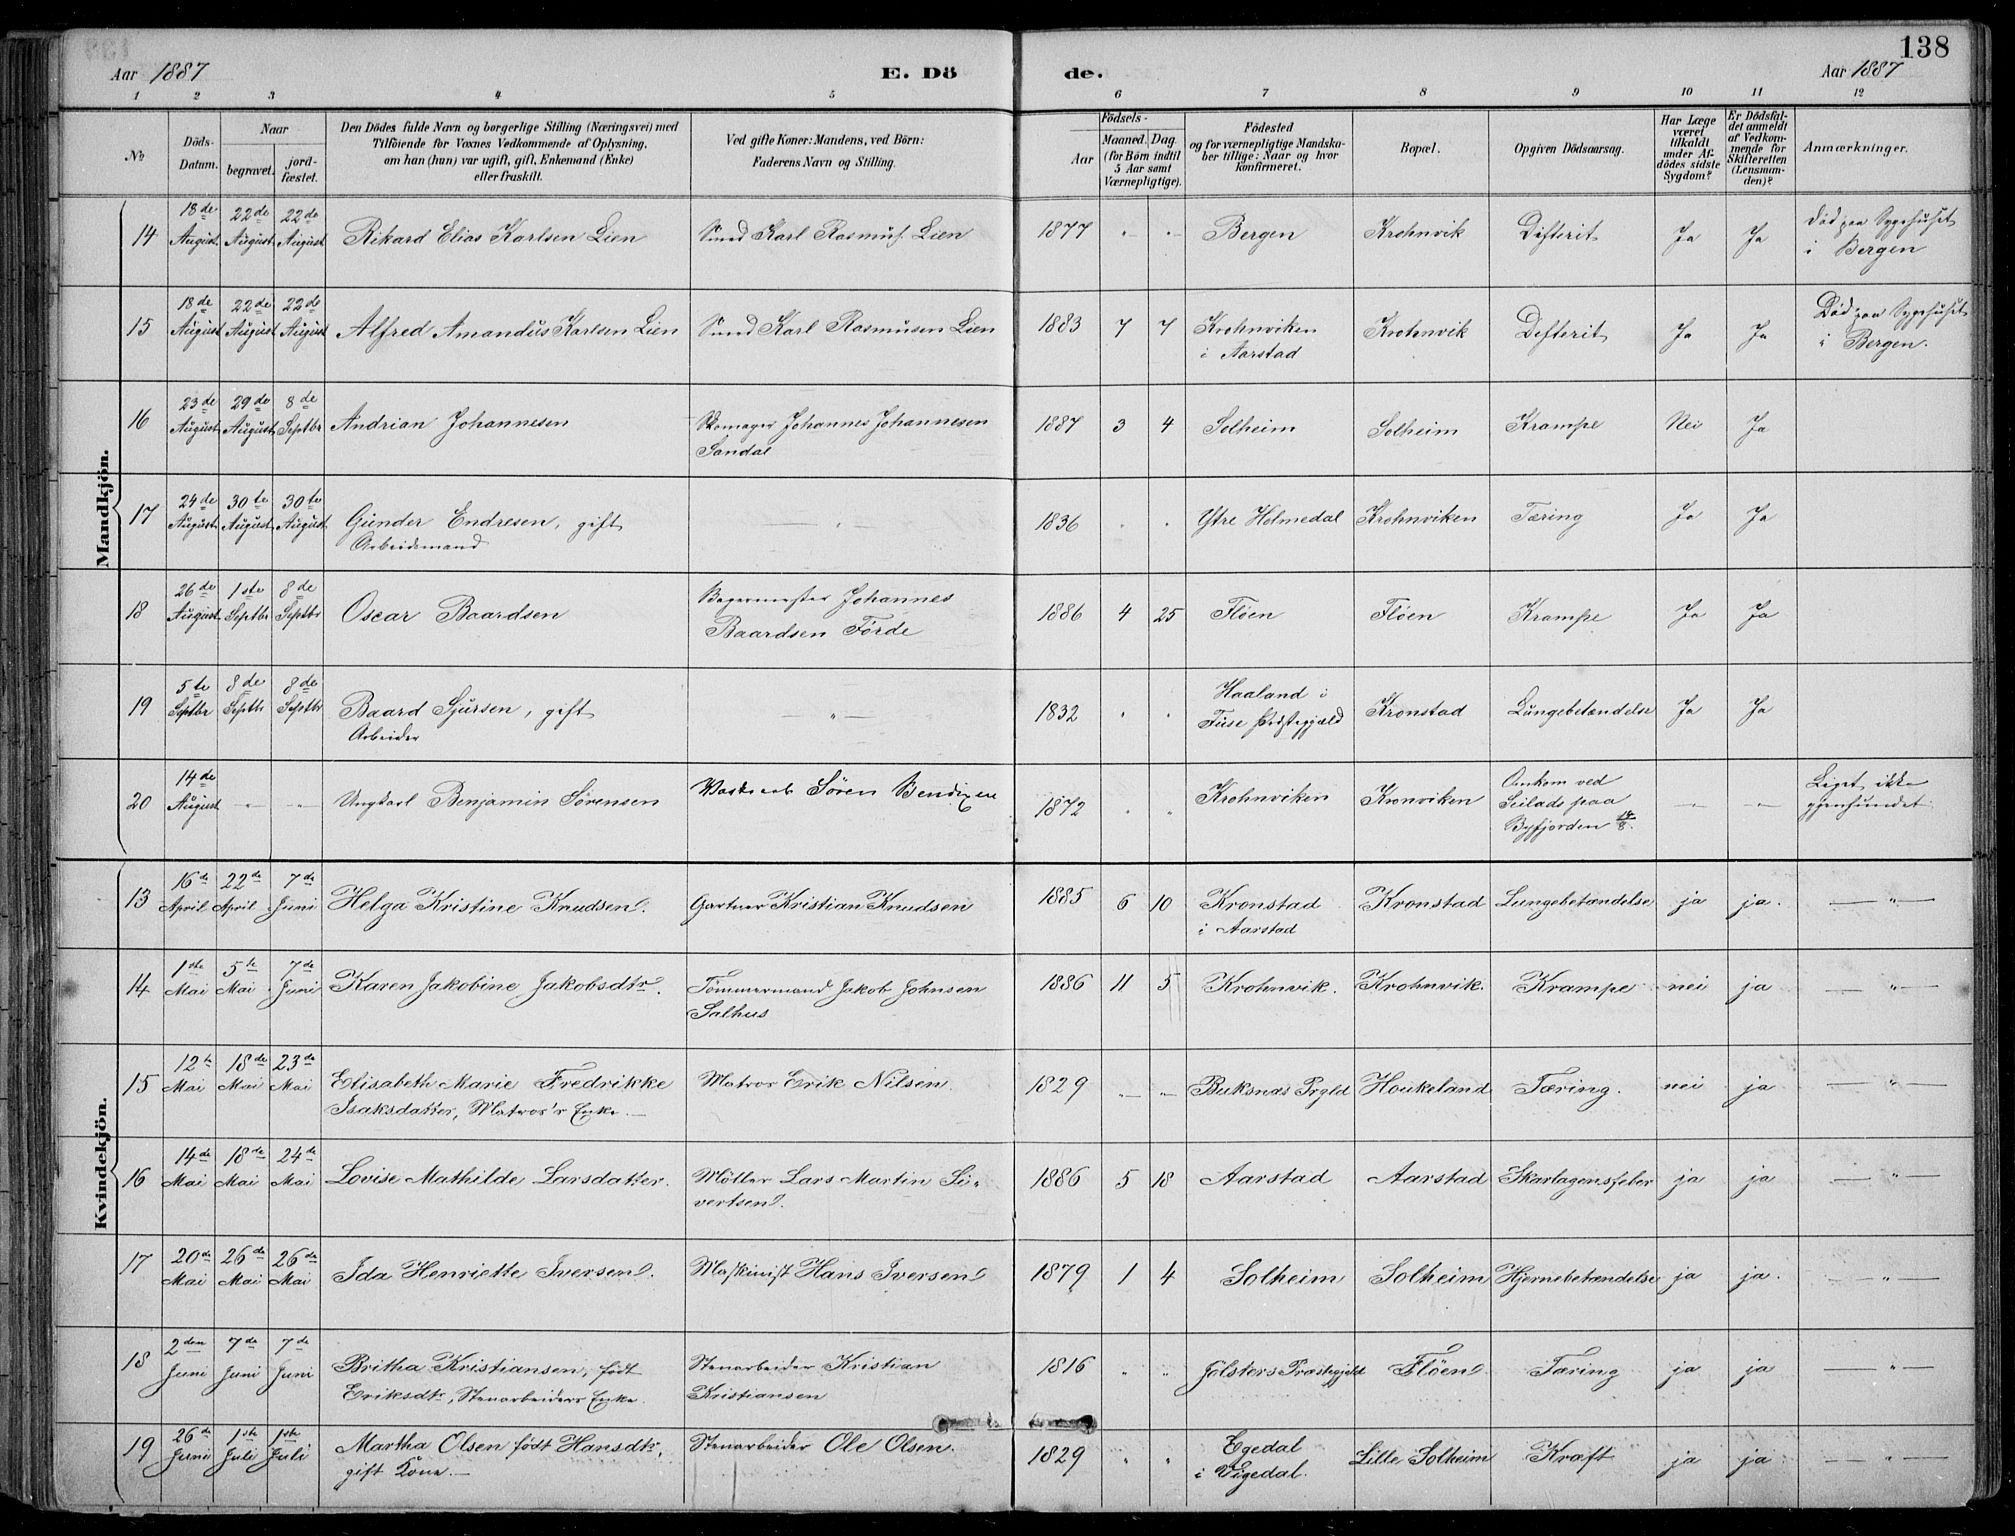 138
Aar 1887 E. Dö de. Aar 1887
1 2 3 4 5 6 7 8 9 10 11 12
№
Döds-
Datum.
Naar
begravet.
jord-
fæstet.
Den Dödes fulde Navn og borgerlige Stilling (Næringsvei) med
Tilföiende for Voxnes Vedkommende af Oplysning,
om han (hun) var ugift, gift, Enkemand (Enke)
eller fraskilt.
Ved gifte Koner: Mandens, ved Börn:
Faderens Navn og Stilling.
Födsels-
Aar
Maaned. Dag.
(for Börn indtil
5 Aar samt
Værnepligtige).
Födested
og for værnepligtige Mandska-
ber tillige: Naar og hvor
konfirmeret.
Bopæl.
Opgiven Dödsaarsag.
Har Læge
været
tilkaldt
under Af-
dödes sidste
Sygdom?
Er Dödsfal-
det anmeldt
af Vedkom-
mende for
Skifteretten
(Lensman-
den)?
Anmærkninger.
Mandkjön.
18de 22de 22de Död paa Sygehuset
14 August August August Rikard Elias Karlsen Lien Smed Karl Rasmus. Lien 1877 " " Bergen Krohnvik Difterit Ja Ja i Bergen
18de 22de 22de Död paa Sygehuset
15 August August August Alfred Amandus Karlsen Lien Smed Karl Rasmusen Lien 1883 7 7 Krohnviken Krohnvik Difterit Ja Ja i Bergen.
i Aarstad
23de 29de 8de
16 August August Septbr Andrian Johannesen Skomager Johannes Johannesen 1887 3 4 Solheim Solheim Krampe Nei Ja
Sandal
24de 30te 30te
17 August August August Gunder Endresen, gift " 1836 " " Ytre Holmedal Krohnviken Tæring Ja Ja
Arbeidsmand
26de 1ste 8de
18 August Septbr Septbr Oscar Baardsen Bagermester Johannes 1886 4 25 Flöen Flöen Krampe Ja Ja
Baardsen Förde
5te 8de 8de Haaland i
19 Septbr Septbr Septbr Baard Sjursen, gift — " — 1832 " " Fuse Præstegjæld Kronstad Lungebetændelse Ja Ja
Arbeider
14de Omkom ved Liget ikke
20 August " " Ungkarl Benjamin Sörensen Sören Bendixen 1872 " " Krohnviken Kronviken Seilads paa — " — — " — gjenfundet.
Byfjorden 14/8.
Kvindekjön.
16de 22de 7de
13 April April Juni Helga Kristine Knudsen. Gartner Kristian Knudsen 1885 6 10 Kronstad Kronstad Lungebetændelse ja ja. — " —
i Aarstad
1ste 5te 7de
14 Mai Mai Juni Karen Jakobine Jakobsdtr. Tömmermand Jakob Johnsen 1886 11 5 Krohnvik. Krohnvik. Krampe nei ja — " —
Salhus
12te 18de 23de
15 Mai Mai Mai Elisabeth Marie Fredrikke Matros Erik Nilsen. 1829 — " — — " — Buksnæs Prgld Houkeland Tæring. nei ja — " —
Isaksdatter, Matros's Enke. —
14de 18de 24de
16 Mai Mai Mai Lovise Mathilde Larsdatter. Möller Lars Martin Si- 1886 5 18 Aarstad Aarstad Skarlagensfeber ja ja — " —
vertsen.
20de 26de 26de
17 Mai Mai Mai Ida Henriette Iversen. Maskinist Hans Iversen 1879 1 4 Solheim Solheim Hjernebetændelse ja ja. — " —
2den 7de 7de
18 Juni Juni Juni Britha Kristiansen, födt Stenarbeider Kristian 1816 " " Jölsters Præstegjeld Flöen. Tæring ja ja — " —
Eriksdtr, Stenarbeiders Enke. Kristiansen
26de 1ste 1ste
19 Juni Juli Juli Martha Olsen födt Hansdtr, Stenarbeider Ole Olsen. 1829 " " Egedal Lille Solheim Kræft ja ja — " —
gift Kone. — i Vigedal.